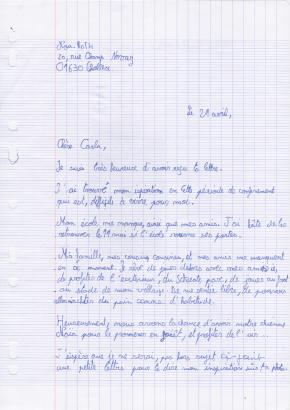 20, rue
01630
Le 21 avril,
Chère Carla,
Je suis très heureuse d'avoir reçu ta lettre.
J'ai trouvé mon inspiration en cette période de confinement
qui est, difficile à vivre pour moi.
Mon école me manque, ainsi que mes amis. J'ai hâte de les
retrouver le 11 mai si l'école ouvre ses portes.
Ma famille, mes cousins, cousines, et mes amis me manquent
en ce moment. Je rêve de jouer dehors avec mes amis,
de profiter de l'extérieur, du skate park, de jouer au foot
au stade de mon village. De me sentir libre, de pouvoir
du pain comme d'habitude.
Heureusement, nous avons la chance d'avoir notre chienne
pour la promener en forêt, et profiter de l'air...
J'espère que je ne serai, pas hors sujet ci-joint
une petite lettre pour te dire mon inspiration sur ta photo.